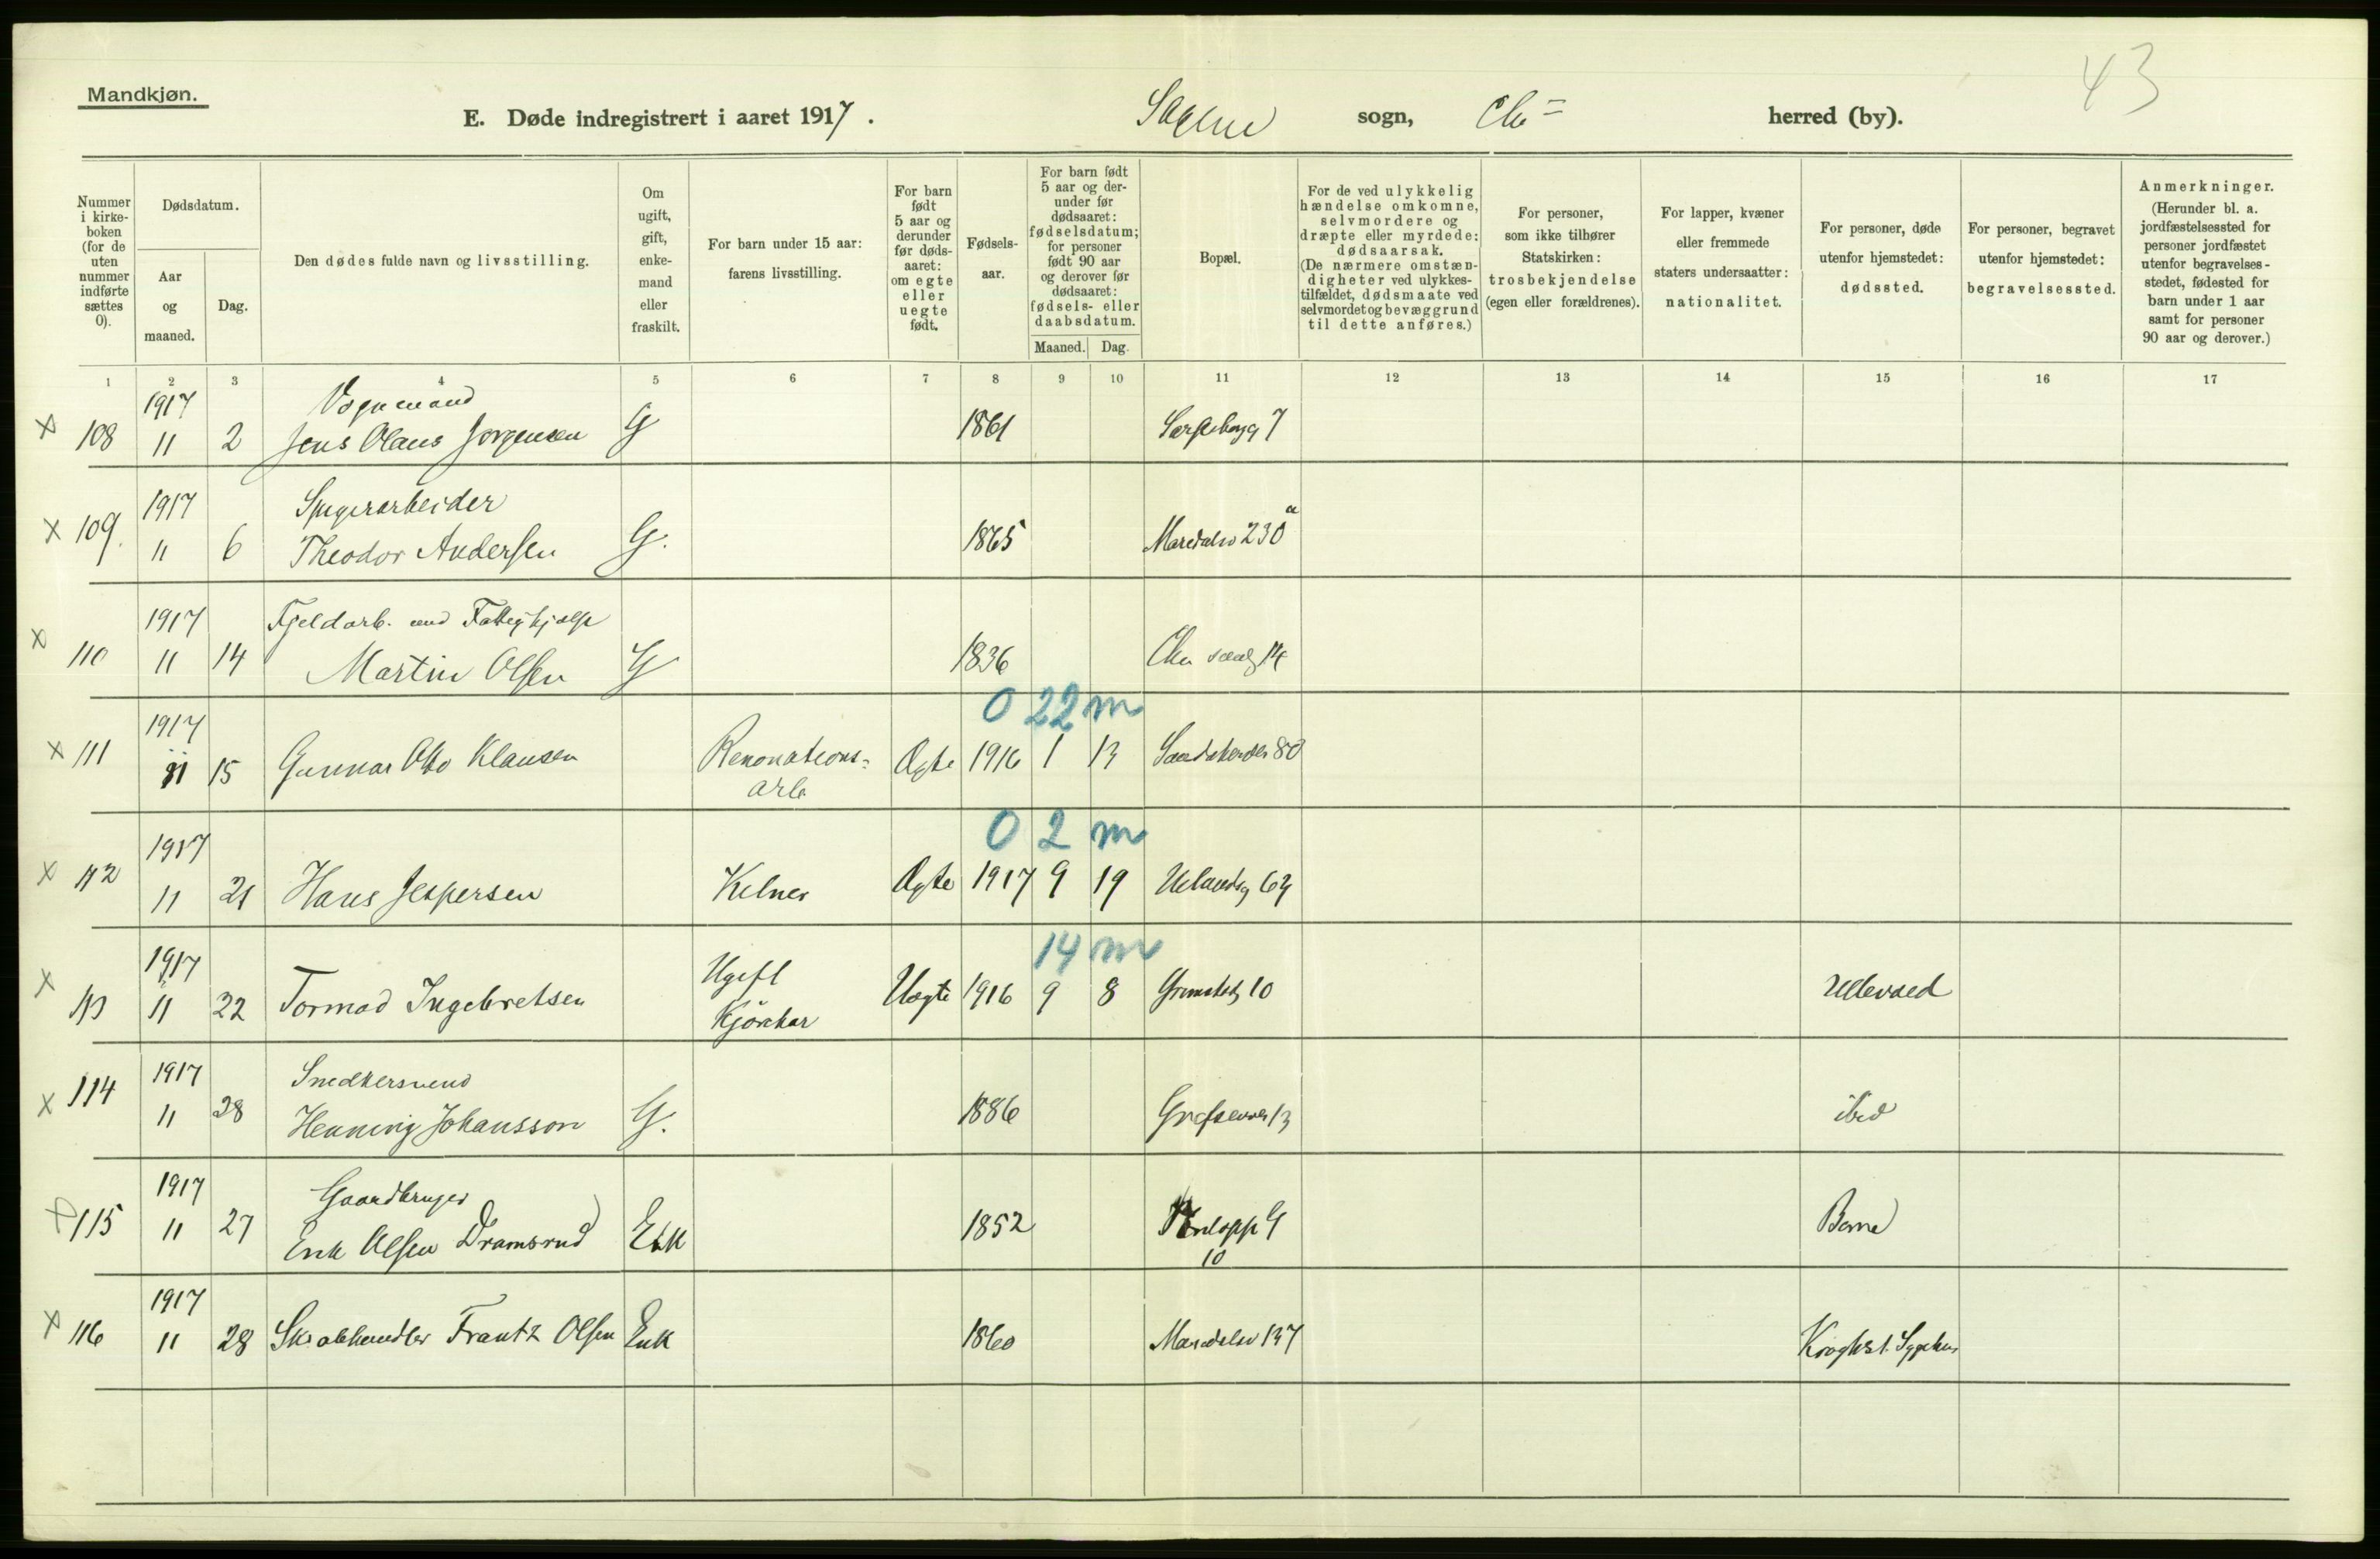 Mandkjøn.
43
E. Døde indregistrert i aaret 1917. Sagene sogn, Chr= herred (by).
Nummer i kirke-boken (for de uten nummer indførte sættes 0).
Dødsdatum.
Aar og maaned.
Dag.
Den dødes fulde navn og livsstilling.
Om ugift, gift, enke-mand eller fraskilt.
For barn under 15 aar: farens livsstilling.
For barn født 5 aar og derunder før døds-aaret: om egte eller uegte født.
Fødsels-aar.
For barn født 5 aar og der-under før dødsaaret: fødselsdatum; for personer født 90 aar og derover før dødsaaret: fødsels- eller daabsdatum.
Maaned. Dag.
Bopæl.
For de ved ulykkelig hændelse omkomne, selvmordere og dræpte eller myrdede: dødsaarsak. (De nærmere omstæn-digheter ved ulykkes-tilfældet, dødsmaate ved selvmordet og bevæggrund til dette anføres.)
For personer, som ikke tilhører Statskirken: trosbekjendelse (egen eller forældrenes).
For lapper, kvæner eller fremmede staters undersaatter: nationalitet.
For personer, døde utenfor hjemstedet: dødssted.
For personer, begravet utenfor hjemstedet: begravelsessted.
Anmerkninger. (Herunder bl. a. jordfæstelsessted for personer jordfæstet utenfor begravelses-stedet, fødested for barn under 1 aar samt for personer 90 aar og derover.)
1 2 3 4 5 6 7 8 9 10 11 12 13 14 15 16 17
1917 Vognmand
x 108 11 2 Jens Olaus Jorgensen G 1861 7
1917 Spigerarbeider
x 109. 11 6 Theodor Andersen G. 1865 Maredalsv 230 a
1917 Fjeldarb. und Fattighjælp
x 110 11 14 Martin Olsen G 1836 14
0 22 m
1917
x 111 11 15 Gunnar Otto Klausen Renonations= Ægte 1916 1 13 80
arb
0 2 m
1917
x 112 11 21 Hans Jespersen Kelner Ægte 1917 9 19 Uelandsg 69
14 m
1917 Ugift
x 113 11 22 Tormod Ingebretsen Uægte 1916 9 8 Grimstadg 10 Ullevaal
Kjörekar
1917 Snedkersvend
x 114 11 28 Henning Johansson G. 1886 Grefsenvei 13 ibid
1917 Gaardbruger
x 115 11 27 Erik Olsen Dramsrud Enk 1852 G
10
1917
x 116 11 28 Skrabhandler Frantz Olsen Enk 1860 Maredalsv 137 Kroghst. Sygehus